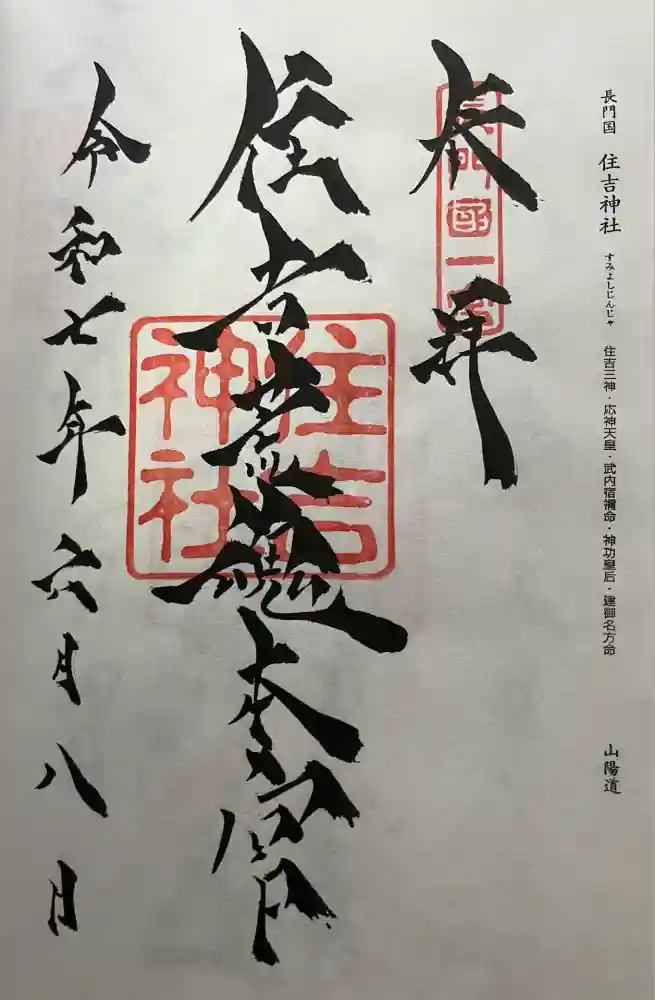 長門国 住吉神社 すみよしじんじゃ 住吉三神・応神天皇・武内宿禰命・神功皇后・建御名方命 山陽道
奉拝
長門國一宮
住吉荒魂本宮
住吉
神社
令和七年六月八日